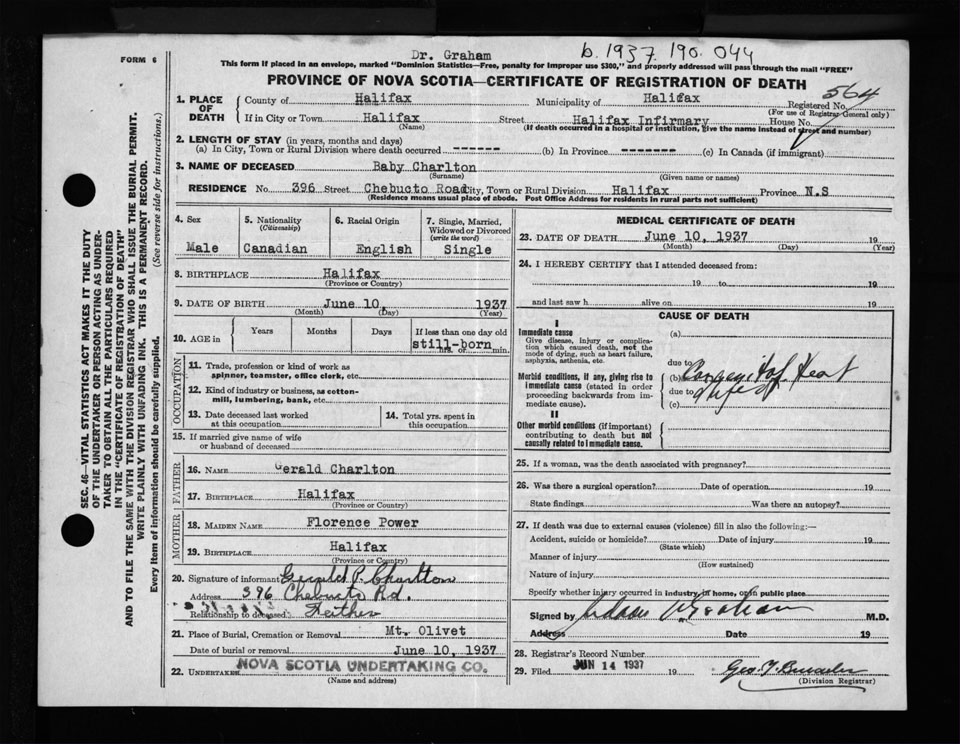 FORM 6
Dr. Graham
b. 1937. 190. 044
This form if placed in an envelope, marked "Dominion Statistics—Free, penalty for improper use $300," and properly addressed will pass through the mail "FREE"
PROVINCE OF NOVA SCOTIA—CERTIFICATE OF REGISTRATION OF DEATH
1. PLACE OF DEATH
County of Halifax Municipality of Halifax Registered No. 564
(For use of Registrar General only)
If in City or Town Halifax Street Halifax Infirmary House No.
(Name) (If death occurred in a hospital or institution, give the name instead of street and number)
2. LENGTH OF STAY (in years, months and days)
(a) In City, Town or Rural Division where death occurred ------ (b) In Province ------- (c) In Canada (if immigrant)
3. NAME OF DECEASED Baby Charlton
(Surname) (Given name or names)
RESIDENCE No. 396 Street Chebucto Road City, Town or Rural Division Halifax Province N.S
(Residence means usual place of abode. Post Office Address for residents in rural parts not sufficient)
4. Sex
Male
5. Nationality (Citizenship)
Canadian
6. Racial Origin
English
7. Single, Married, Widowed or Divorced (write the word)
Single
8. BIRTHPLACE Halifax
(Province or Country)
9. DATE OF BIRTH June 10, 1937
(Month) (Day) (Year)
10. AGE in Years Months Days If less than one day old
still-born hrs. or min.
OCCUPATION
11. Trade, profession or kind of work as spinner, teamster, office clerk, etc.
12. Kind of industry or business, as cotton-mill, lumbering, bank, etc.
13. Date deceased last worked at this occupation
14. Total yrs. spent in this occupation
15. If married give name of wife or husband of deceased
FATHER
16. NAME Gerald Charlton
17. BIRTHPLACE Halifax
(Province or Country)
MOTHER
18. MAIDEN NAME Florence Power
19. BIRTHPLACE Halifax
(Province or Country)
20. Signature of informant Gerald P. Charlton
Address 396 Chebucto Rd.
Relationship to deceased Father
21. Place of Burial, Cremation or Removal Mt. Olivet
Date of burial or removal June 10, 1937
22. UNDERTAKER NOVA SCOTIA UNDERTAKING CO.
(Name and address)
MEDICAL CERTIFICATE OF DEATH
23. DATE OF DEATH June 10, 1937 19
(Month) (Day) (Year)
24. I HEREBY CERTIFY that I attended deceased from:
19 to 19
and last saw h alive on 19
CAUSE OF DEATH
I
Immediate cause
Give disease, injury or complication which caused death, not the mode of dying, such as heart failure, asphyxia, asthenia, etc.
(a)
due to
Morbid conditions, if any, giving rise to immediate cause (stated in order proceeding backwards from immediate cause).
(b) Congenital Heart
due to
(c)
II
Other morbid conditions (if important) contributing to death but not causally related to immediate cause.
25. If a woman, was the death associated with pregnancy?
26. Was there a surgical operation? Date of operation 19
State findings Was there an autopsy?
27. If death was due to external causes (violence) fill in also the following:—
Accident, suicide or homicide? Date of injury 19
(State which)
Manner of injury
(How sustained)
Nature of injury
Specify whether injury occurred in industry, in home, or in public place
Signed by Graham M.D.
Address Date 19
28. Registrar's Record Number
29. Filed JUN 14 1937 19
(Division Registrar)
SEC. 46—VITAL STATISTICS ACT MAKES IT THE DUTY
OF THE UNDERTAKER OR PERSON ACTING AS UNDER-
TAKER TO OBTAIN ALL THE PARTICULARS REQUIRED
IN THE "CERTIFICATE OF REGISTRATION OF DEATH"
AND TO FILE THE SAME WITH THE DIVISION REGISTRAR WHO SHALL ISSUE THE BURIAL PERMIT.
WRITE PLAINLY WITH UNFADING INK. THIS IS A PERMANENT RECORD.
Every item of information should be carefully supplied. (See reverse side for instructions.)